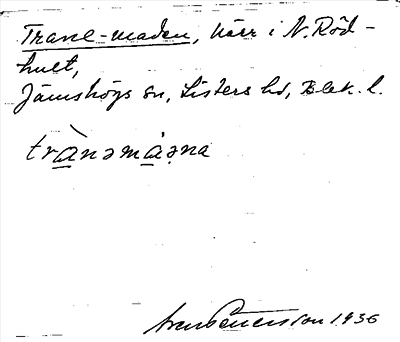 Trane-maden, kärr i N. Röd-
hult,
Jämshögs sn, Listers hd, Blek. l.
trànəmáəna
Sven Petersson 1936